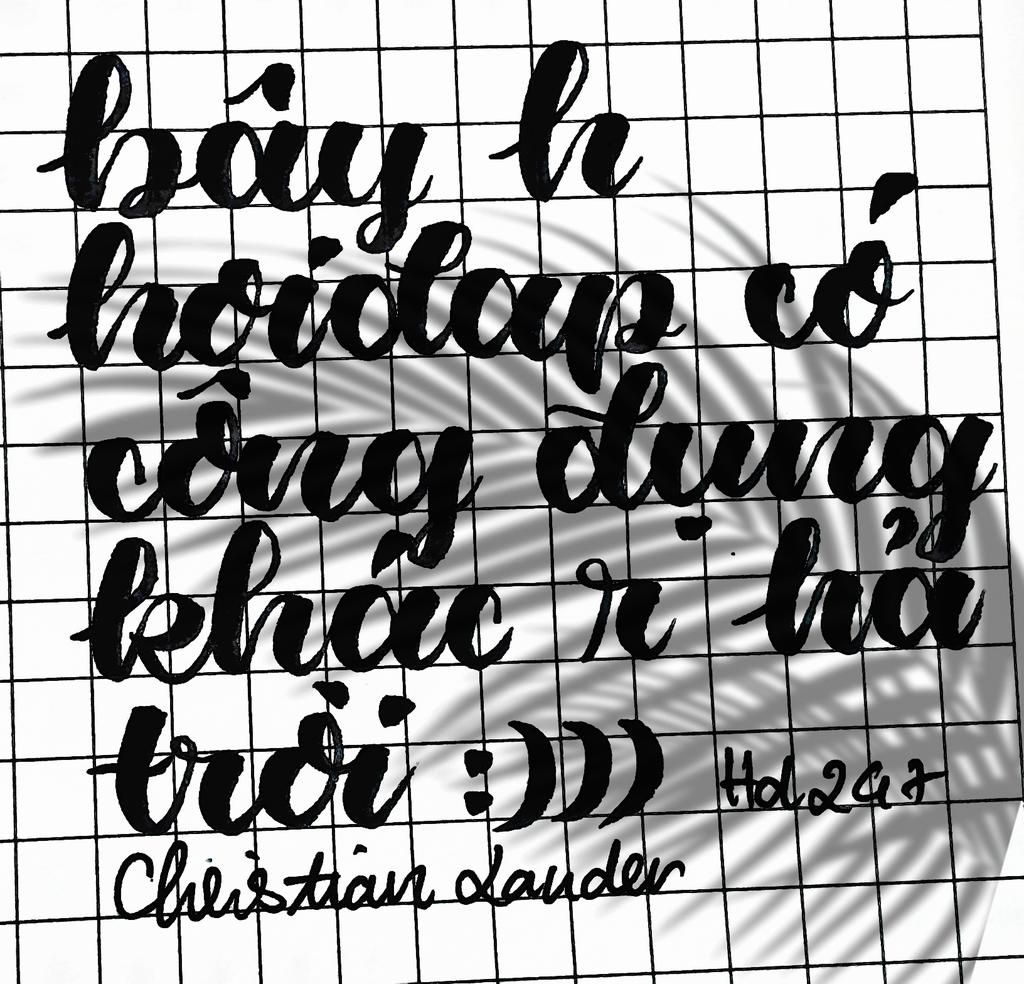 bây h
hoidap có
công dụng
khác r hả
trời :))) Hd247
Christian Lander